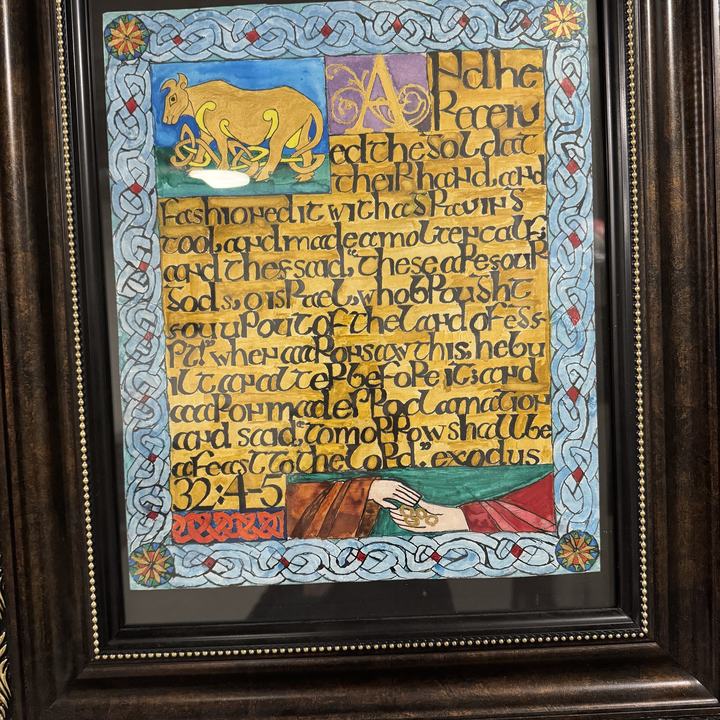 And he
receiv
ed the gold at
their hand, and
fashioned it with a graving
tool, and made a molten calf;
and they said, "these are your
gods, o israel, who brought
you up out of the land of egy-
pt!" when aaron saw this, he bu
ilt an alter before it; and
aaron made proclamation
and said, "tomorrow shall be
a feast to the lord." exodus
32:4-5